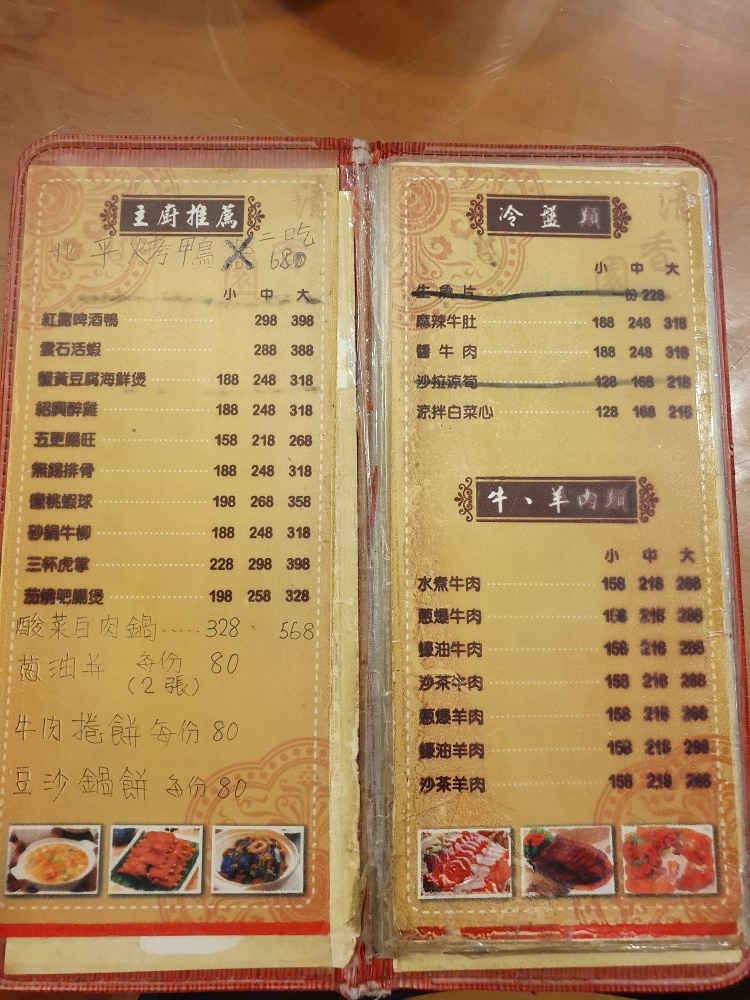 主廚推薦
北平烤鴨 二吃 680
小 中 大
紅露啤酒鴨 298 398
雲石活蝦 288 388
蟹黃豆腐海鮮煲 188 248 318
紹興醉雞 188 248 318
五更腸旺 158 218 268
無錫排骨 188 248 318
蜜桃蝦球 198 268 358
砂鍋牛柳 188 248 318
三杯虎掌 228 298 398
茄燒肥腸煲 198 258 328
酸菜白肉鍋..... 328. 568
蔥油羊 每份 80
(2張)
牛肉捲餅 每份 80
豆沙鍋餅 每份 80
冷盤類
小 中 大
生魚片 份 228
麻辣牛肚 188 248 318
醬牛肉 188 248 318
沙拉涼筍 128 168 218
涼拌白菜心 128 168 218
牛、羊肉類
小 中 大
水煮牛肉 158 218 288
蔥爆牛肉 158 218 288
蠔油牛肉 158 218 288
沙茶牛肉 158 218 288
蔥爆羊肉 158 218 288
蠔油羊肉 158 218 288
沙茶羊肉 158 218 288